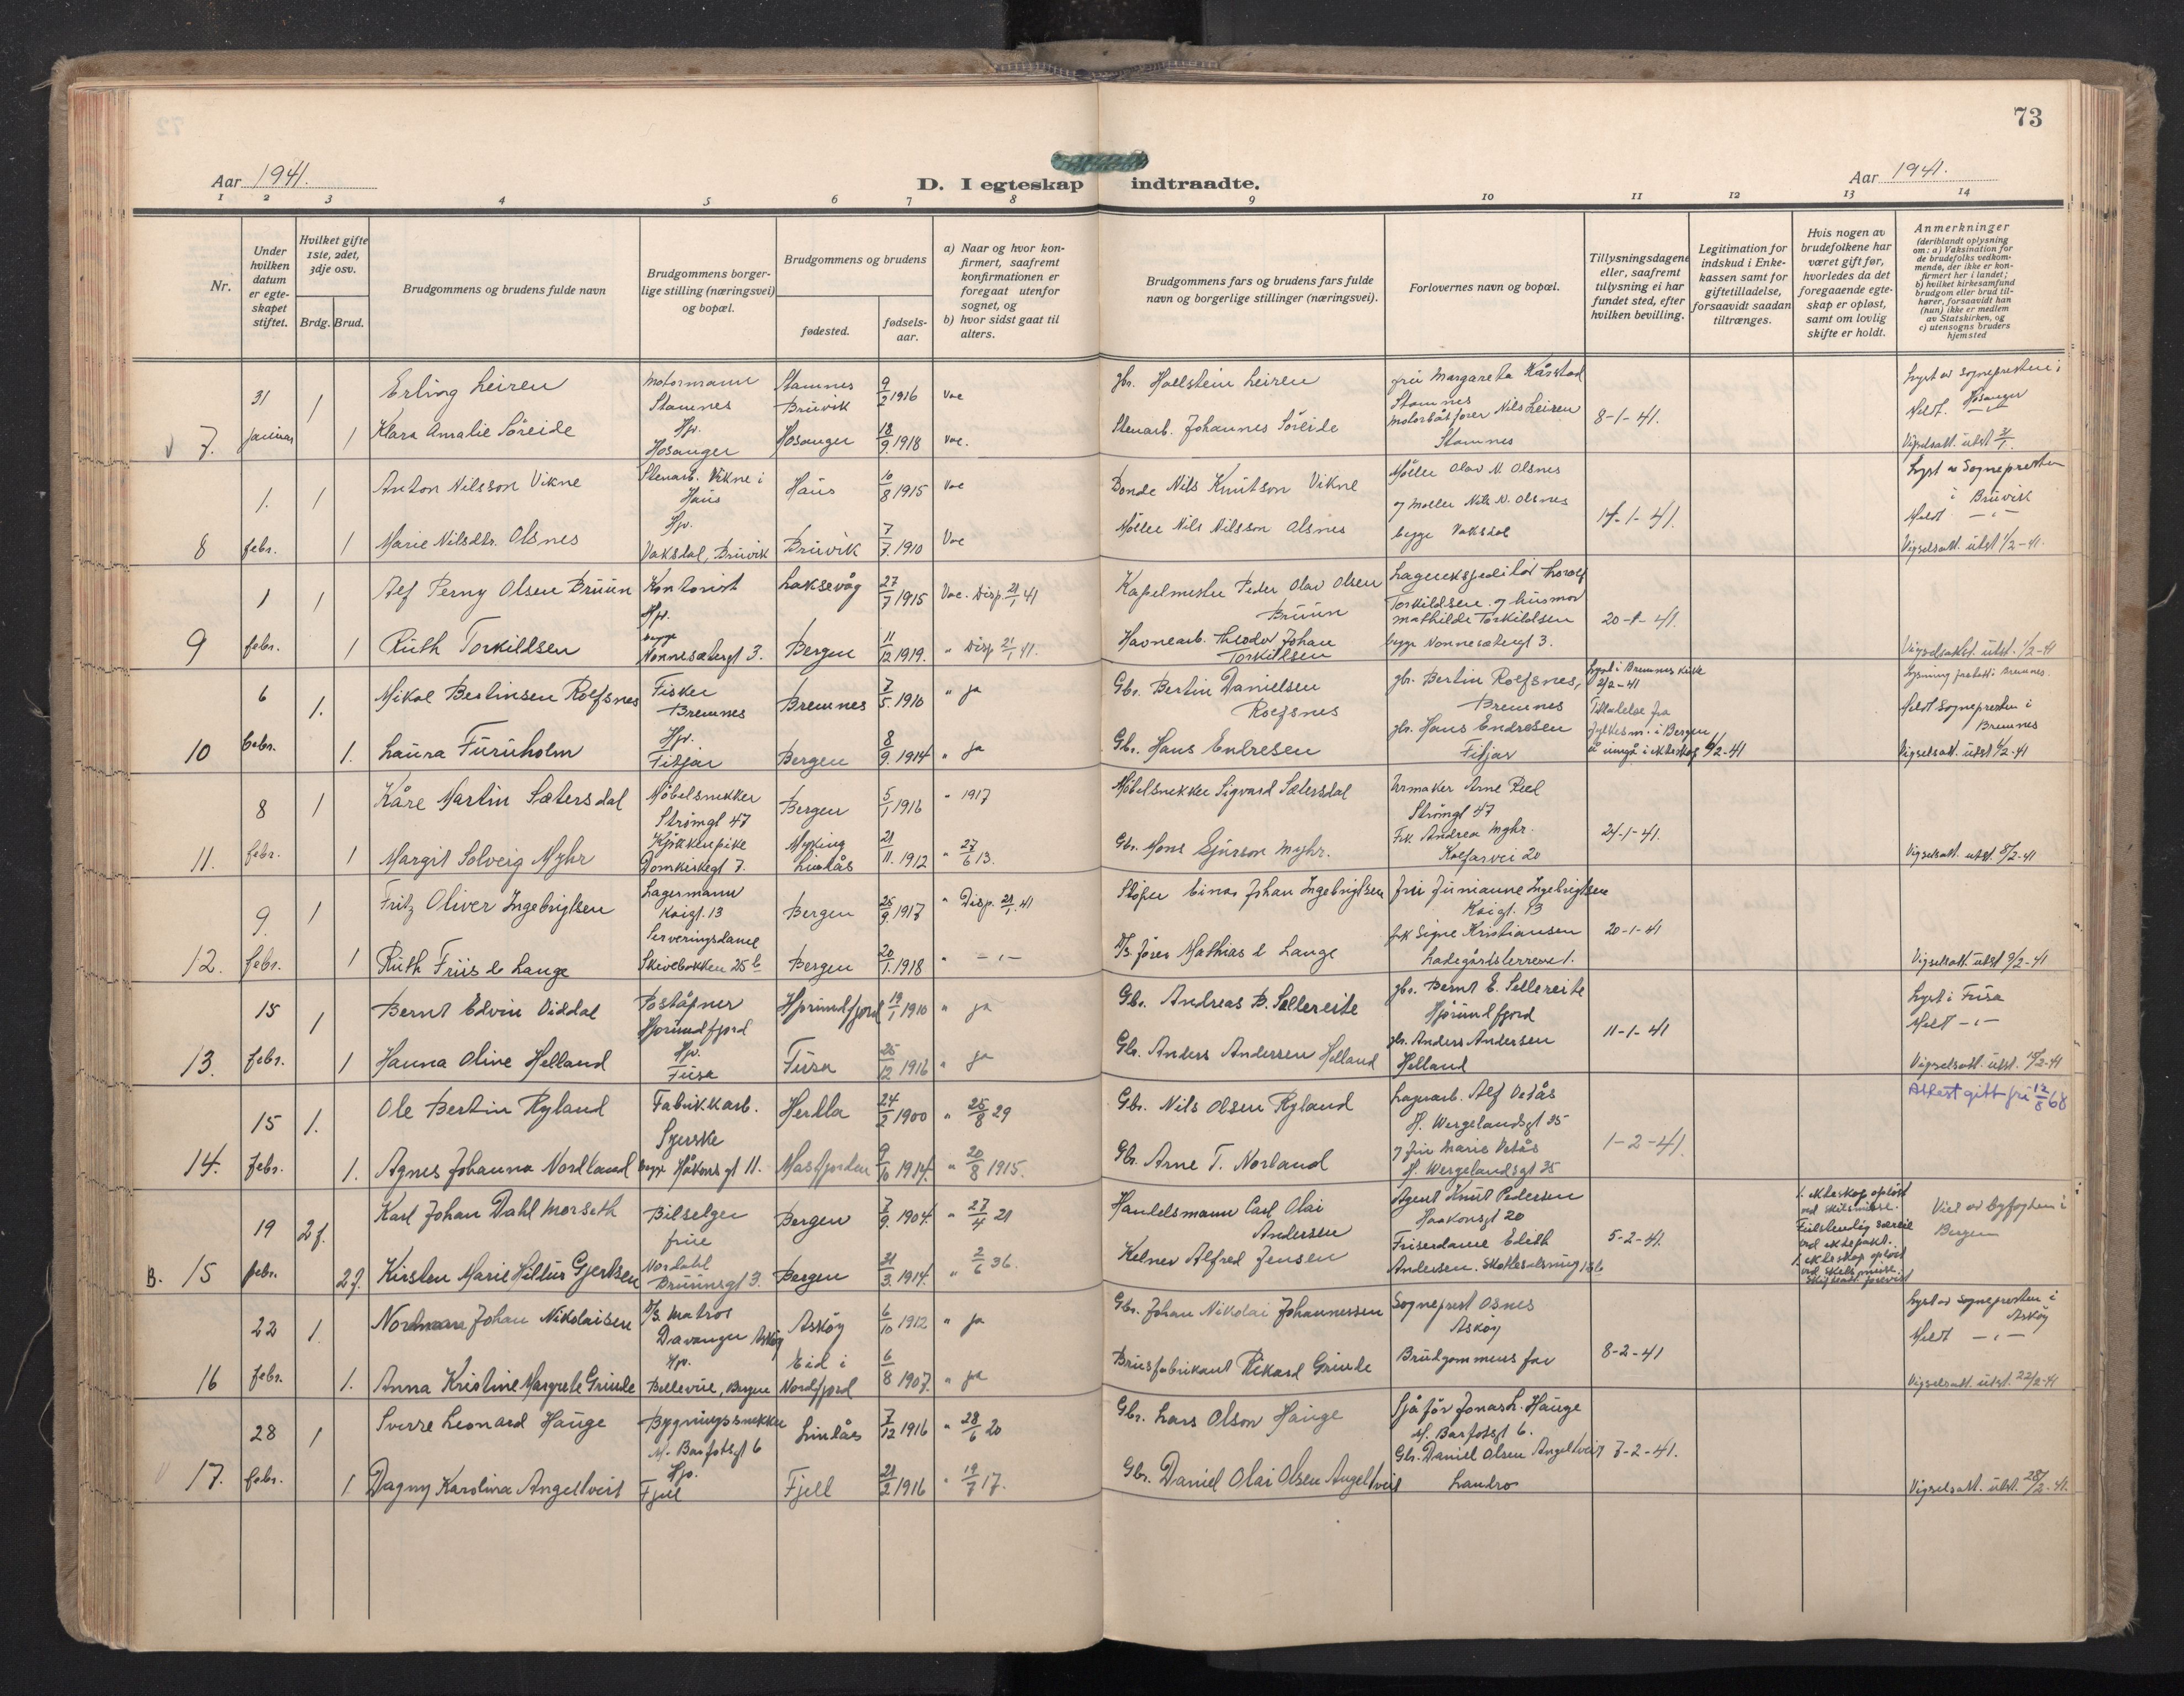 73
Aar 1941.
D. I egteskap indtraadte.
Aar 1941.
1 2 3 4 5 6 7 8 9 10 11 12 13 14
Nr.
Under hvilken datum er egteskapet stiftet.
Hvilket gifte 1ste, 2det, 3dje osv.
Brdg. Brud.
Brudgommens og brudens fulde navn
Brudgommens borgerlige stilling (næringsvei) og bopæl.
Brudgommens og brudens
fødested.
fødselsaar.
a) Naar og hvor konfirmert, saafremt konfirmationen er foregaat utenfor sognet, og
b) hvor sidst gaat til alters.
Brudgommens fars og brudens fars fulde navn og borgerlige stillinger (næringsvei).
Forlovernes navn og bopæl.
Tillysningsdagene eller, saafremt tillysning ei har fundet sted, efter hvilken bevilling.
Legitimation for indskud i Enkekassen samt for giftetilladelse, forsaavidt saadan tiltrænges.
Hvis nogen av brudefolkene har været gift før, hvorledes da det foregaaende egteskap er opløst, samt om lovlig skifte er holdt.
Anmerkninger
(deriblandt oplysning om: a) Vaksination for de brudefolks vedkommende, der ikke er konfirmert her i landet;
b) hvilket kirkesamfund brudgom eller brud tilhører, forsaavidt han (hun) ikke er medlem av Statskirken, og
c) utensogns bruders hjemsted
31 1 Erling Leiren Motormann Stamnes Stamnes Bruvik 9/2 1916 Vac gbr. Hallstein Leiren fru Margareta Kårstad Stamnes Lyst av Sognepresten i Hosanger
7. januar 1 Klara Amalie Søreide Hp. Hosanger Hosanger 18/9 1918 Vac. Stenarb. Johannes Søreide motorbåtfører Nils Leiren Stamnes 8-1-41. Meldt -"- Vigselsatt. utst 31/1
1. 1 Anton Nilsson Vikne Stenarb. Vikne i Haus Haus 10/8 1915 Vac Bonde Nils Knutson Vikne Møller Olav N. Olsnes Lyst av Sognepresten i Bruvik
8 febr. 1 Marie Nilsdtr. Olsnes Hp. Vaksdal, Bruvik Bruvik 7/7 1910 Vac Møller Nils Nilsson Olsnes og Møller Nils N. Olsnes begge Vaksdal 17-1-41. Meldt -"- Vigselsatt. utst 1/2-41.
1 1 Alf Perny Olsen Bruun Kontorist Laksevåg 27/7 1915 Vac. Disp. 21/1 41 Kapelmester Peder Olav Olsen Bruun Lagerekspeditør Thoralf Torkildsen og husmor
9 febr. 1 Ruth Torkildsen Hp. begge Nonnesætergt 3. Bergen 11/12 1919. " Disp 21/1 41. Havnearb. Theodor Johan Torkildsen Mathilde Torkildsen begge Nonnesætergt 3. 20-1-41. Vigselsatt. utst. 1/2-41
6 1. Mikal Bertinsen Rolfsnes Fisker Bremnes Bremnes 7/5 1910 " ja Gbr. Bertin Danielsen Rolfsnes gbr. Bertin Rolfsnes, Bremnes Lyst i Bremnes kirke 2/2-41 Lysning foretatt i Bremnes.
10 febr. 1. Laura Furuholm Hp. Fitjar Bergen 8/9. 1914 " ja Gbr. Hans Endresen gbr. Hans Endresen Fitjar Tillatelse fra fylkesm. i Bergen å inngå i ekteskap 6/2-41 Meldt Sognepresten i Bremnes Vigselsatt. utst 6/2-41
8 1 Kåre Martin Sætersdal Møbelsnekker Strømgt 47 Bergen 5/1 1916 " 1917 Møbelsnekker Sigvard Sætersdal Urmaker Arne Red Strømgt 47
11. febr. 1 Margit Solveig Myhr Kjøkkenpike Domkirkegt 7. Myking Lindås 21/11. 1912 " 27/6 13. Gbr. Mons Sjurson Myhr. Frk. Andrea Myhr. Kalfarvei 20 24-1-41. Vigselsatt. utst. 8/2-41
9. 1 Fritz Oliver Ingebrigtsen Lagermann Kaigt. 13 Bergen 25/9. 1917 " Disp. 21/1 41 Støper Einar Johan Ingebrigtsen fru Junianne Ingebrigtsen Kaigt. 13
12. febr. 1 Ruth Friis de Lange Serveringsdame Skivebakken 25b Bergen 20/1. 1918 " -"- D/S fører Mathias de Lange frk Signe Kristiansen Ladegårdsterrasse 1. 20-1-41 Vigselsatt. utst 9/2-41
15 1 Bernt Edvin Viddal Poståpner Hjørundfjord Hjørundfjord 19/1 1910 " ja Gbr. Andreas B. Sellereite gbr. Bernt E. Sellereite Hjørundfjord Lyst i Fusa
13. febr. 1 Hanna Oline Helland Hp. Fusa Fusa 25/12 1916 " ja Gbr. Anders Andersen Helland gbr. Anders Andersen Helland 11-1-41 Meldt -"- Vigselsatt. utst. 15/2-41
15 1. Ole Bertin Ryland Fabrikkarb. Herdla 24/2 1900 " 25/8 29 Gbr. Nils Olsen Ryland Lagerarb. Alf Vetås H. Wergelandsgt 35 Attest gitt fri 12/8 68
14. febr. 1. Agnes Johanna Nordland Syerske begge Håkons gt 11. Masfjorden 9/10 1914. " 20/8 1915. Gbr. Arne T. Norland og fru Marie Vetås H. Wergelandsgt 35 1-2-41.
19 2 f. Karl Johan Dahl Morseth Bilselger Bergen 7/9. 1904. " 27/4 21 Handelsmann Carl Olai Andersen Agent Knut Pedersen Haakonsgt 20 1. ekteskap opløst ved skilsmisse. Fullstendig særeie ved ektepakt. Viet av byfogden i Bergen
B. 15 febr. 2 f. Kirsten Marie Hillur Gjertsen frue Nordahl Brunsgt 3. Bergen 31/3. 1914. " 2/6 36. Kelner Alfred Jensen Friserdame Edith Andersen. Skottesalsmug 15b 5-2-41. 1. ekteskap opløst ved skilsmisse. Skifteatt. forevist
22 1. Nordmann Johan Nikolaisen D/S. Matros Davanger Askøy Askøy 6/10 1912 " ja Gbr. Johan Nikolai Johannessen Sogneprest Osnes Askøy Lyst av Sognepresten i Askøy
16 febr. 1. Anna Kristine Margrete Grinde Hp. Bellevue, Bergen Eid i Nordfjord 6/8 1907. " ja Brusfabrikant Rikard Grinde Brudgommens far 8-2-41 Meldt -"- Vigselsatt. utst. 22/2-41
28 1 Sverre Leonard Hauge Bygningssnekker M. Barfotsgt 6 Lindås 7/12 1916 " 28/6 20 Gbr. Lars Olson Hauge Sjåfør Jonas L. Hauge M. Barfotsgt 6.
17. febr. 1 Dagny Karolina Angeltveit Hp. Fjell Fjell 21/2 1916 " 19/7 17. Gbr. Daniel Olai Olsen Angeltveit Gbr. Daniel Olsen Angeltveit Landro 7-2-41. Vigselsatt. utst. 28/2-41.